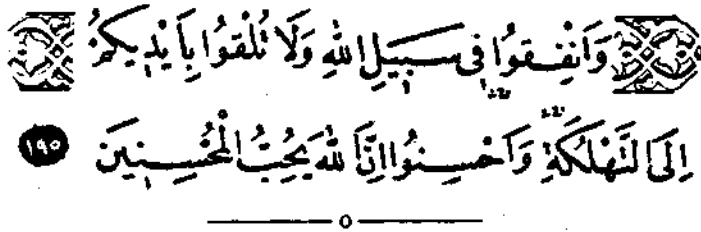 وَاَنْفِقُوا فِى سَبِيلِ اللهِ وَلَا تُلْقُوا بِاَيْدِيكُمْ
اِلَى التَّهْلُكَةِ وَاَحْسِنُوا اِنَّ اللهَ يُحِبُّ الْمُحْسِنِينَ ١٩٥